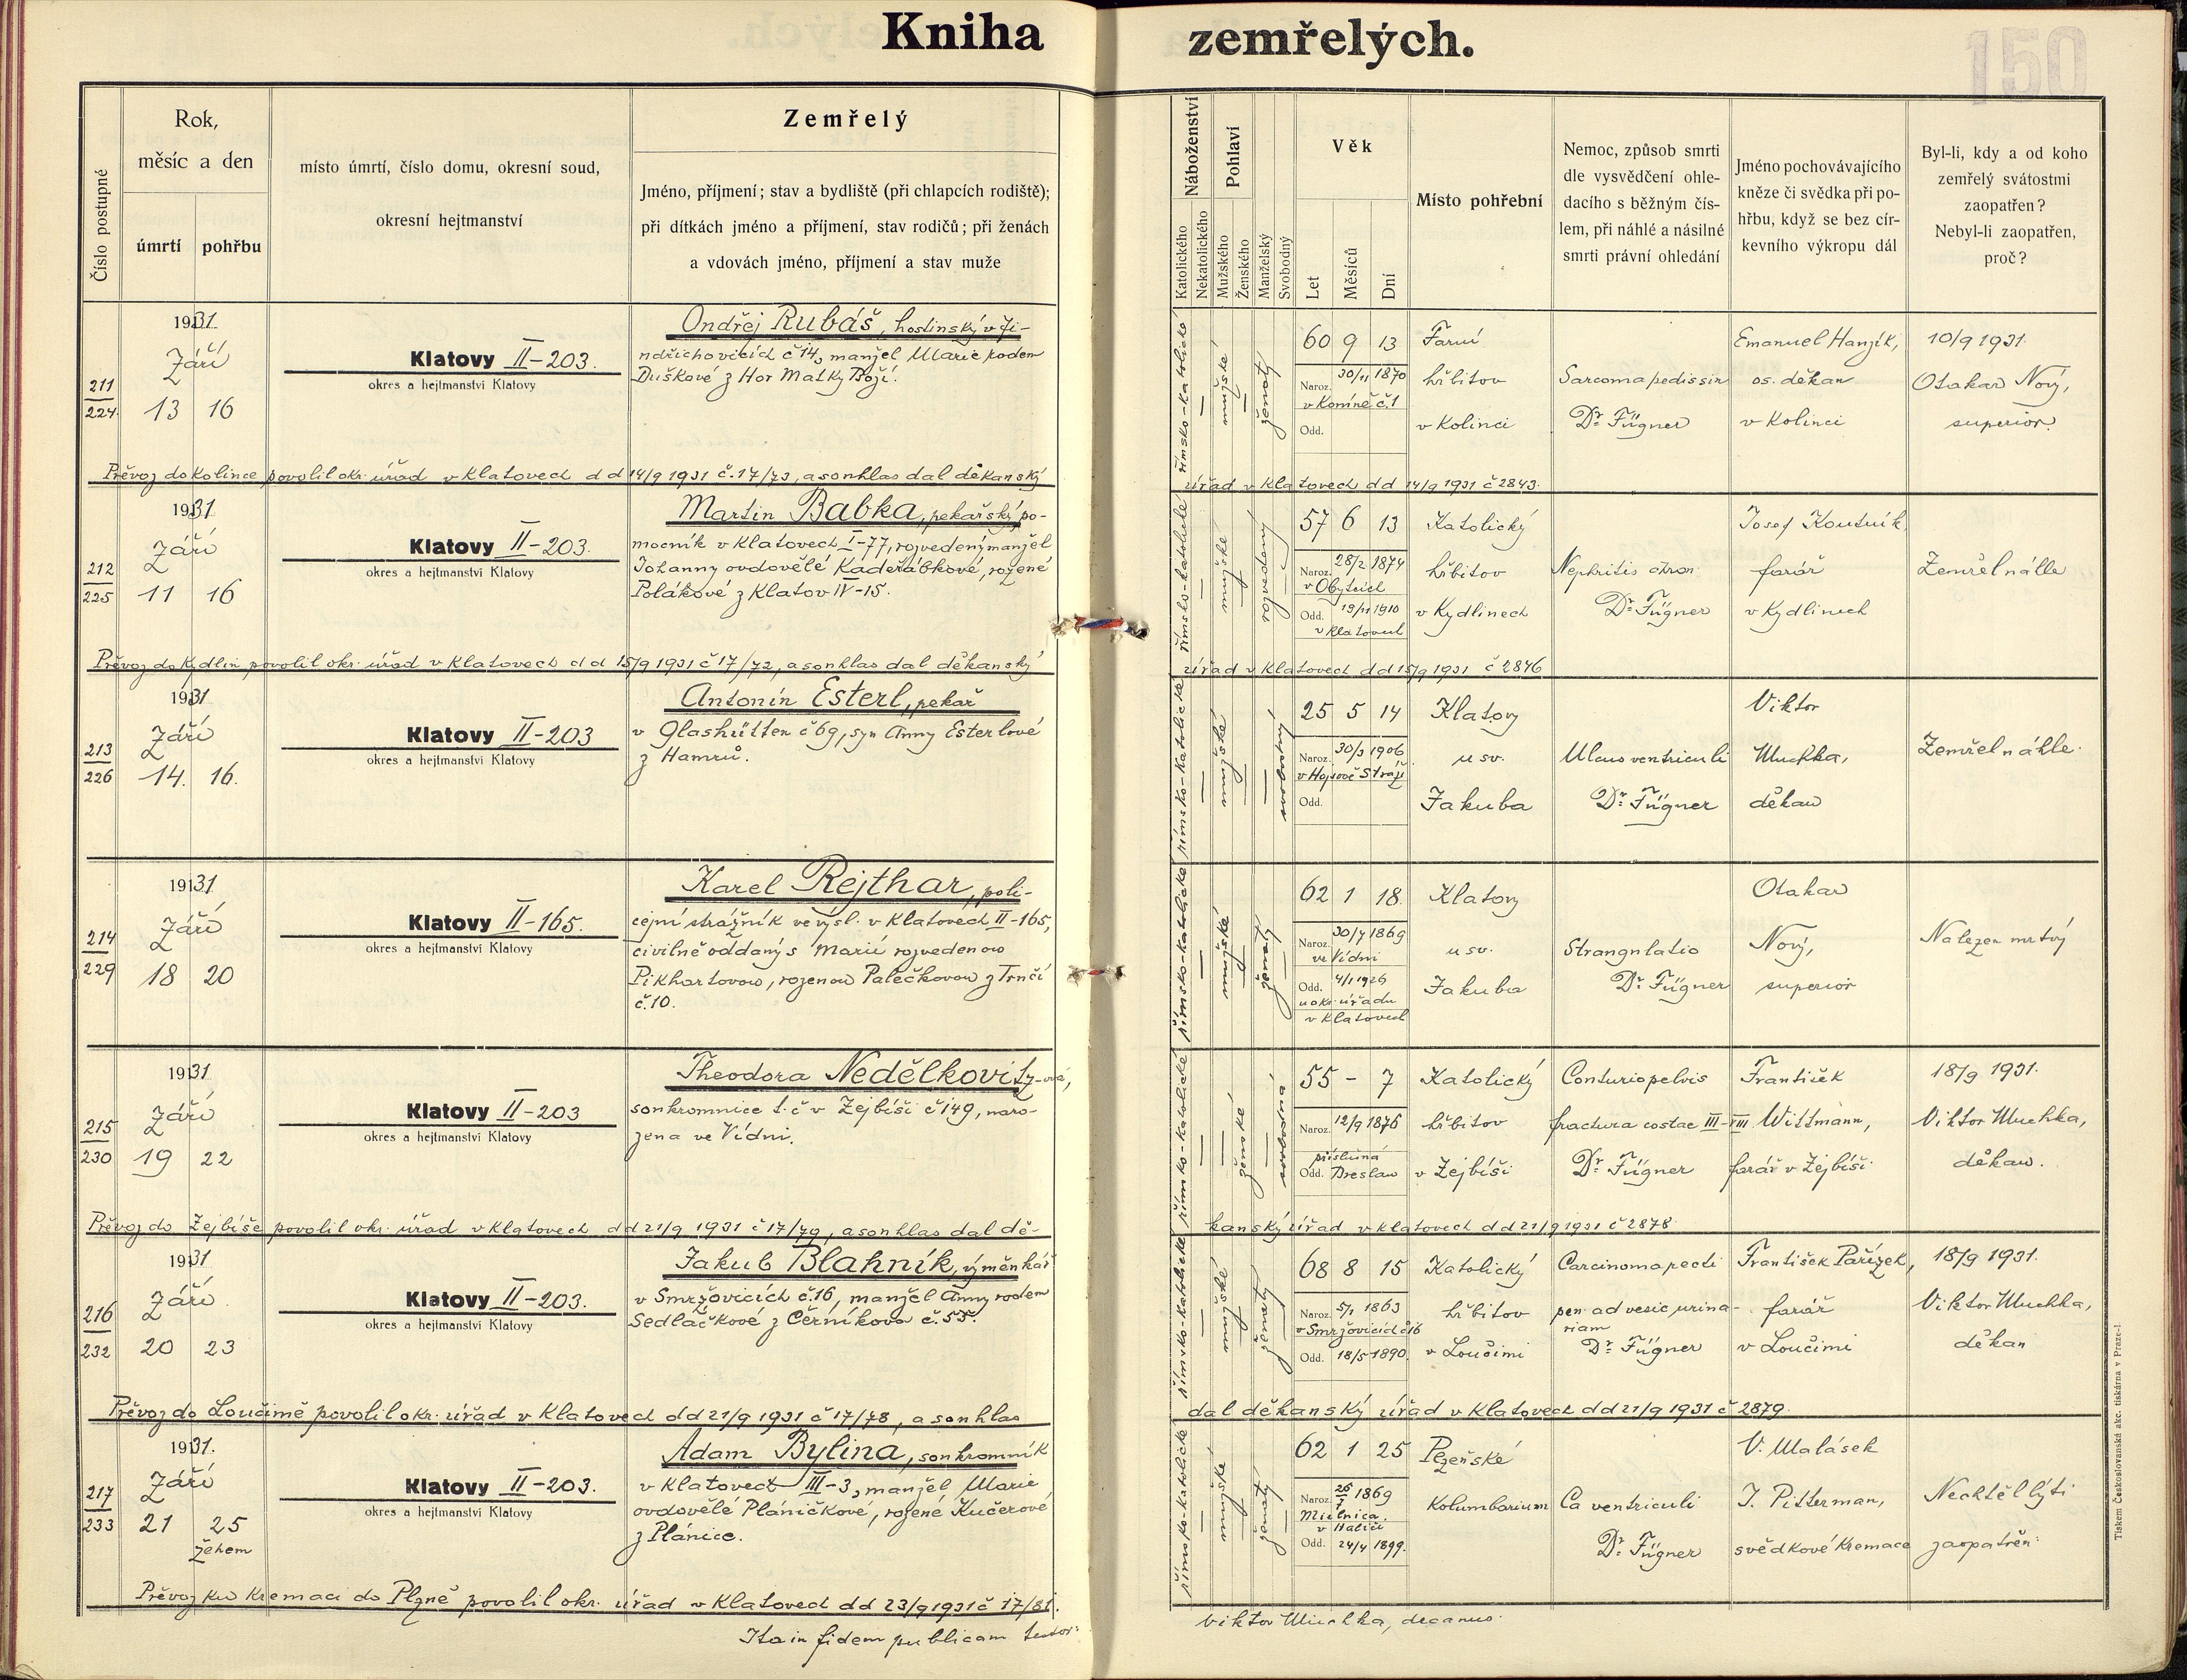 Kniha zemřelých.
150
Číslo postupné
Rok,
měsíc a den
úmrtí
pohřbu
místo úmrtí, číslo domu, okresní soud,
okresní hejtmanství
Zemřelý
Jméno, příjmení; stav a bydliště (při chlapcích rodiště);
při dítkách jméno a příjmení, stav rodičů; při ženách
a vdovách jméno, příjmení a stav muže
Náboženství
Katolického
Nekatolického
Pohlaví
Mužského
Ženského
Manželský
Svobodný
Věk
Let
Měsíců
Dní
Místo pohřební
Nemoc, způsob smrti
dle vysvědčení ohle-
dacího s běžným čís-
lem, při náhlé a násilné
smrti právní ohledání
Jméno pochovávajícího
kněze či svědka při po-
hřbu, když se bez cír-
kevního výkropu dál
Byl-li, kdy a od koho
zemřelý svátostmi
zaopatřen?
Nebyl-li zaopatřen,
proč?
211
224
1931.
Září
13 16
Klatovy II-203.
okres a hejtmanství Klatovy
Ondřej Rubáš, hostinský v Ji-
ndřichovicích č 14, manžel Marie rodem
Duškové z Hor Matky Boží.
římsko-katolické
mužské
ženatý
60 9 13
Naroz. 30/11 1870
v Koníně č.1
Odd.
Farní
hřbitov
v Kolinci
Sarcoma pedis sin
Dr. Fügner
Emanuel Hanzík,
os. děkan
v Kolinci
10/9 1931.
Otakar Nový,
superior.
Převoz do Kolince povolil okr. úřad v Klatovech d d 14/9 1931 č. 17/73, a souhlas dal děkanský
úřad v Klatovech d d 14/9 1931 č 2843.
212
225
1931
Září
11 16
Klatovy II-203.
okres a hejtmanství Klatovy
Martin Babka, pekařský po-
mocník v Klatovech I-77, rozvedený manžel
Johanny ovdovělé Kadeřábkové, rozené
Polákové z Klatov IV-15.
římsko-katolické
mužské
rozvedený
57 6 13
Naroz. 28/2 1874
v Obytcích
Odd. 19/11 1910
v Klatovech
Katolický
hřbitov
v Kydlinech
Nephritis chron
Dr. Fügner
Josef Koutník
farář
v Kydlinech
Zemřel náhle
Převoz do Kydlin povolil okr. úřad v Klatovech d d 15/9 1931 č 17/72, a souhlas dal děkanský
úřad v Klatovech d d 15/9 1931 č 2846
213
226
1931
Září
14. 16.
Klatovy II-203
okres a hejtmanství Klatovy
Antonín Esterl, pekař
v Glashütten č 69, syn Anny Esterlové
z Hamrů.
římsko-katolické
mužské
svobodný
25 5 14
Naroz. 30/3 1906
v Hojsově Stráži
Odd.
Klatovy
u sv.
Jakuba
Ulcus ventriculi
Dr. Fügner
Viktor
Muchka,
děkan
Zemřel náhle.
214
229
1931
Září
18 20
Klatovy II-165.
okres a hejtmanství Klatovy
Karel Rejthar, poli-
cejní strážník ve výsl. v Klatovech II-165,
civilně oddaný s Marií rozvedenou
Pikhartovou, rozenou Palečkovou z Trnčí
č.10.
římsko-katolické
mužské
ženatý
62 1 18.
Naroz. 30/7 1869
ve Vídni
Odd. 4/1 1926
u okr. úřadu
v Klatovech
Klatovy
u sv.
Jakuba
Strangulatio
Dr. Fügner
Otakar
Nový,
superior
Nalezen mrtvý
215
230
1931
Září
19 22
Klatovy II-203
okres a hejtmanství Klatovy
Theodora Nedělkovitz-ová,
soukromnice t. č v Zejbiši č 149, naro-
zena ve Vídni.
římsko-katolické
ženské
svobodná
55 - 7
Naroz. 12/9 1876
příslušná
Odd. Breslau
Katolický
hřbitov
v Zejbiši
Contusio pelvis
fractura costae III-VIII
Dr. Fügner
František
Wittmann,
farář v Zejbiši
18/9 1931.
Viktor Muchka,
děkan.
Převoz do Zejbiše povolil okr. úřad v Klatovech d d 21/9 1931 č 17/79, a souhlas dal dě-
kanský úřad v Klatovech d d 21/9 1931 č 2878
216
232
1931
Září
20 23
Klatovy II-203.
okres a hejtmanství Klatovy
Jakub Blahník, výměnkář
v Smržovicích č.16, manžel Anny rodem
Sedláčkové z Černíkova č.55.
římsko-katolické
mužské
ženatý
68 8 15
Naroz. 5/1 1863
v Smržovicích č 16
Odd. 18/5 1890.
Katolický
hřbitov
v Loučimi
Carcinoma recti
pen. ad vesic urina-
riam
Dr. Fügner
František Pařízek,
farář
v Loučimi
18/9 1931.
Viktor Muchka,
děkan
Převoz do Loučimě povolil okr. úřad v Klatovech d d 21/9 1931 č 17/78, a souhlas
dal děkanský úřad v Klatovech d d 21/9 1931 č 2879.
217
233
1931.
Září
21 25
žehem
Klatovy II-203.
okres a hejtmanství Klatovy
Adam Bylina, soukromník
v Klatovech III-3, manžel Marie
ovdovělé Pláničkové, rozené Kučerové
z Plánice.
římsko-katolické
mužské
ženatý
62 1 25
Naroz. 26/7 1869
Mielnica
v Haliči
Odd. 24/4 1899.
Plzeňské
Kolumbarium
Ca ventriculi
Dr. Fügner
V. Malásek
J. Pitterman,
svědkové kremace
Nechtěl býti
zaopatřen.
Převoz ku kremaci do Plzně povolil okr. úřad v Klatovech d d 23/9 1931 č 17/81.
Ita in fidem publicam testor:
Viktor Muchka, decanus.
Tiskem Československá akc. tiskárna v Praze-I.